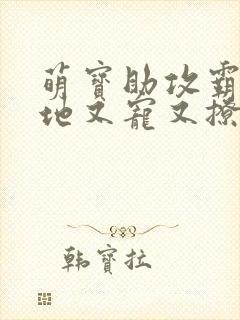 萌寶助攻霸
地又寵又撩
韩寶拉